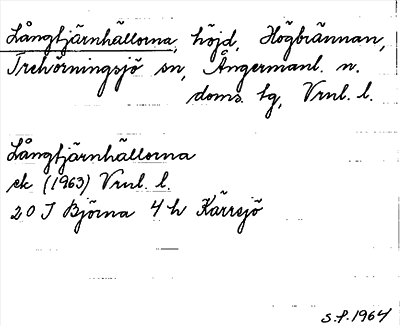 Långtjärnhällorna, höjd, Högbrännan,
Trehörningsjö sn, Ångermanl. n.
doms. tg, Vrnl. l.
Långtjärnhällorna
ek (1963) Vrnl. l.
20 J Björna 4 h Kärrsjö
S.P. 1964